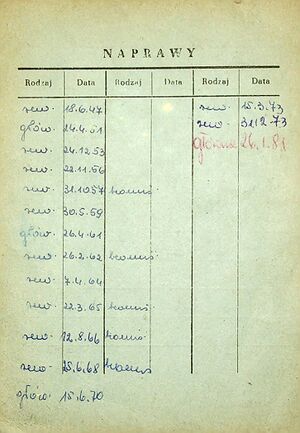 NAPRAWY
Rodzaj Data Rodzaj Data Rodzaj Data
rew. 18.6.47 rew. 15.3.73
głów. 24.4.51 rew. 31.12.73
rew. 24.12.53 główna 26.1.81
rew. 22.11.56
rew. 31.10.57
rew. 30.5.59
głów. 26.4.61
rew. 26.2.62
rew. 7.4.64
rew. 22.3.65
rew. 12.8.66
rew. 25.6.68
głów. 15.6.70